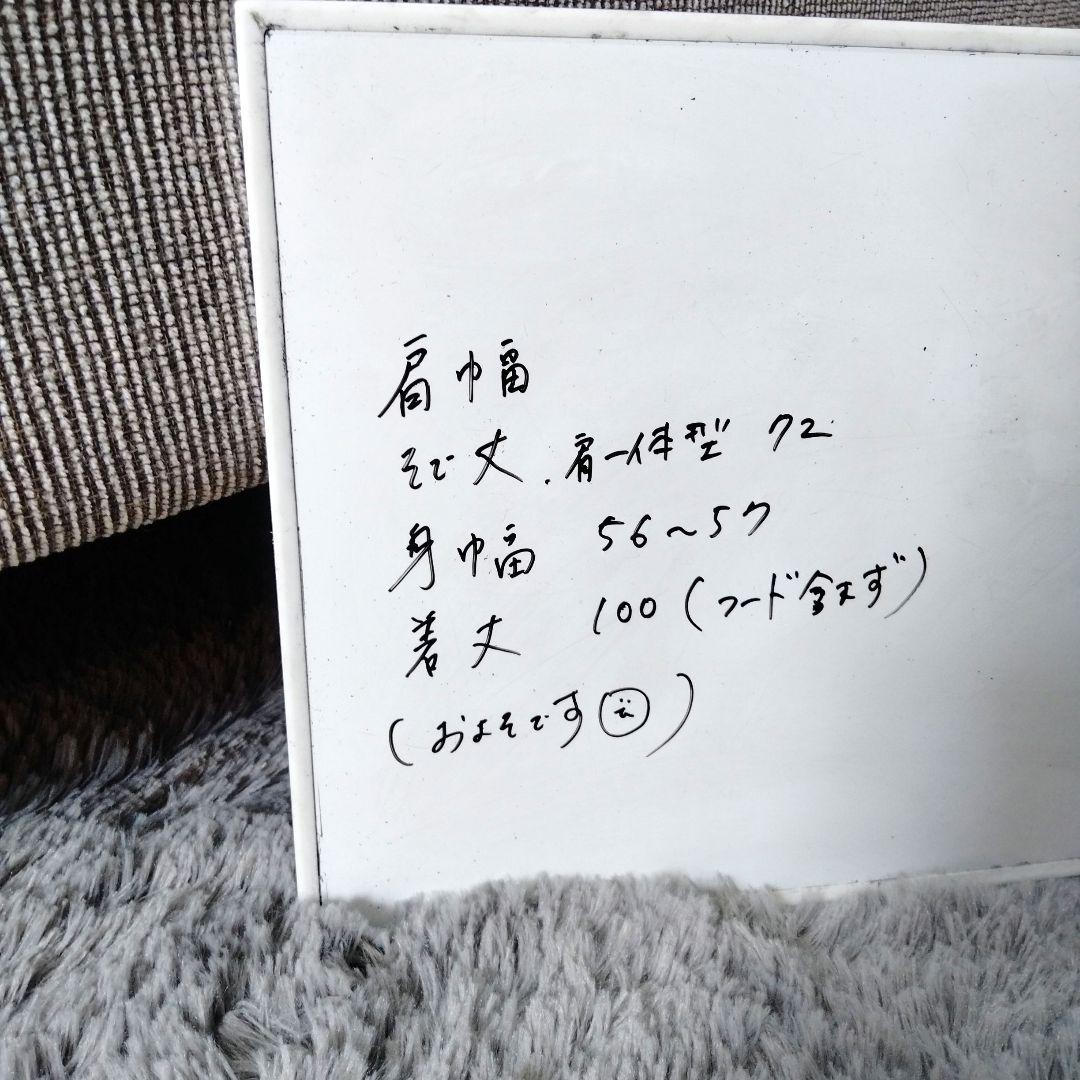 肩巾幅
そで丈.肩一体型 72
身巾幅 56~57
着丈 100(フード含まず)
(およそです)